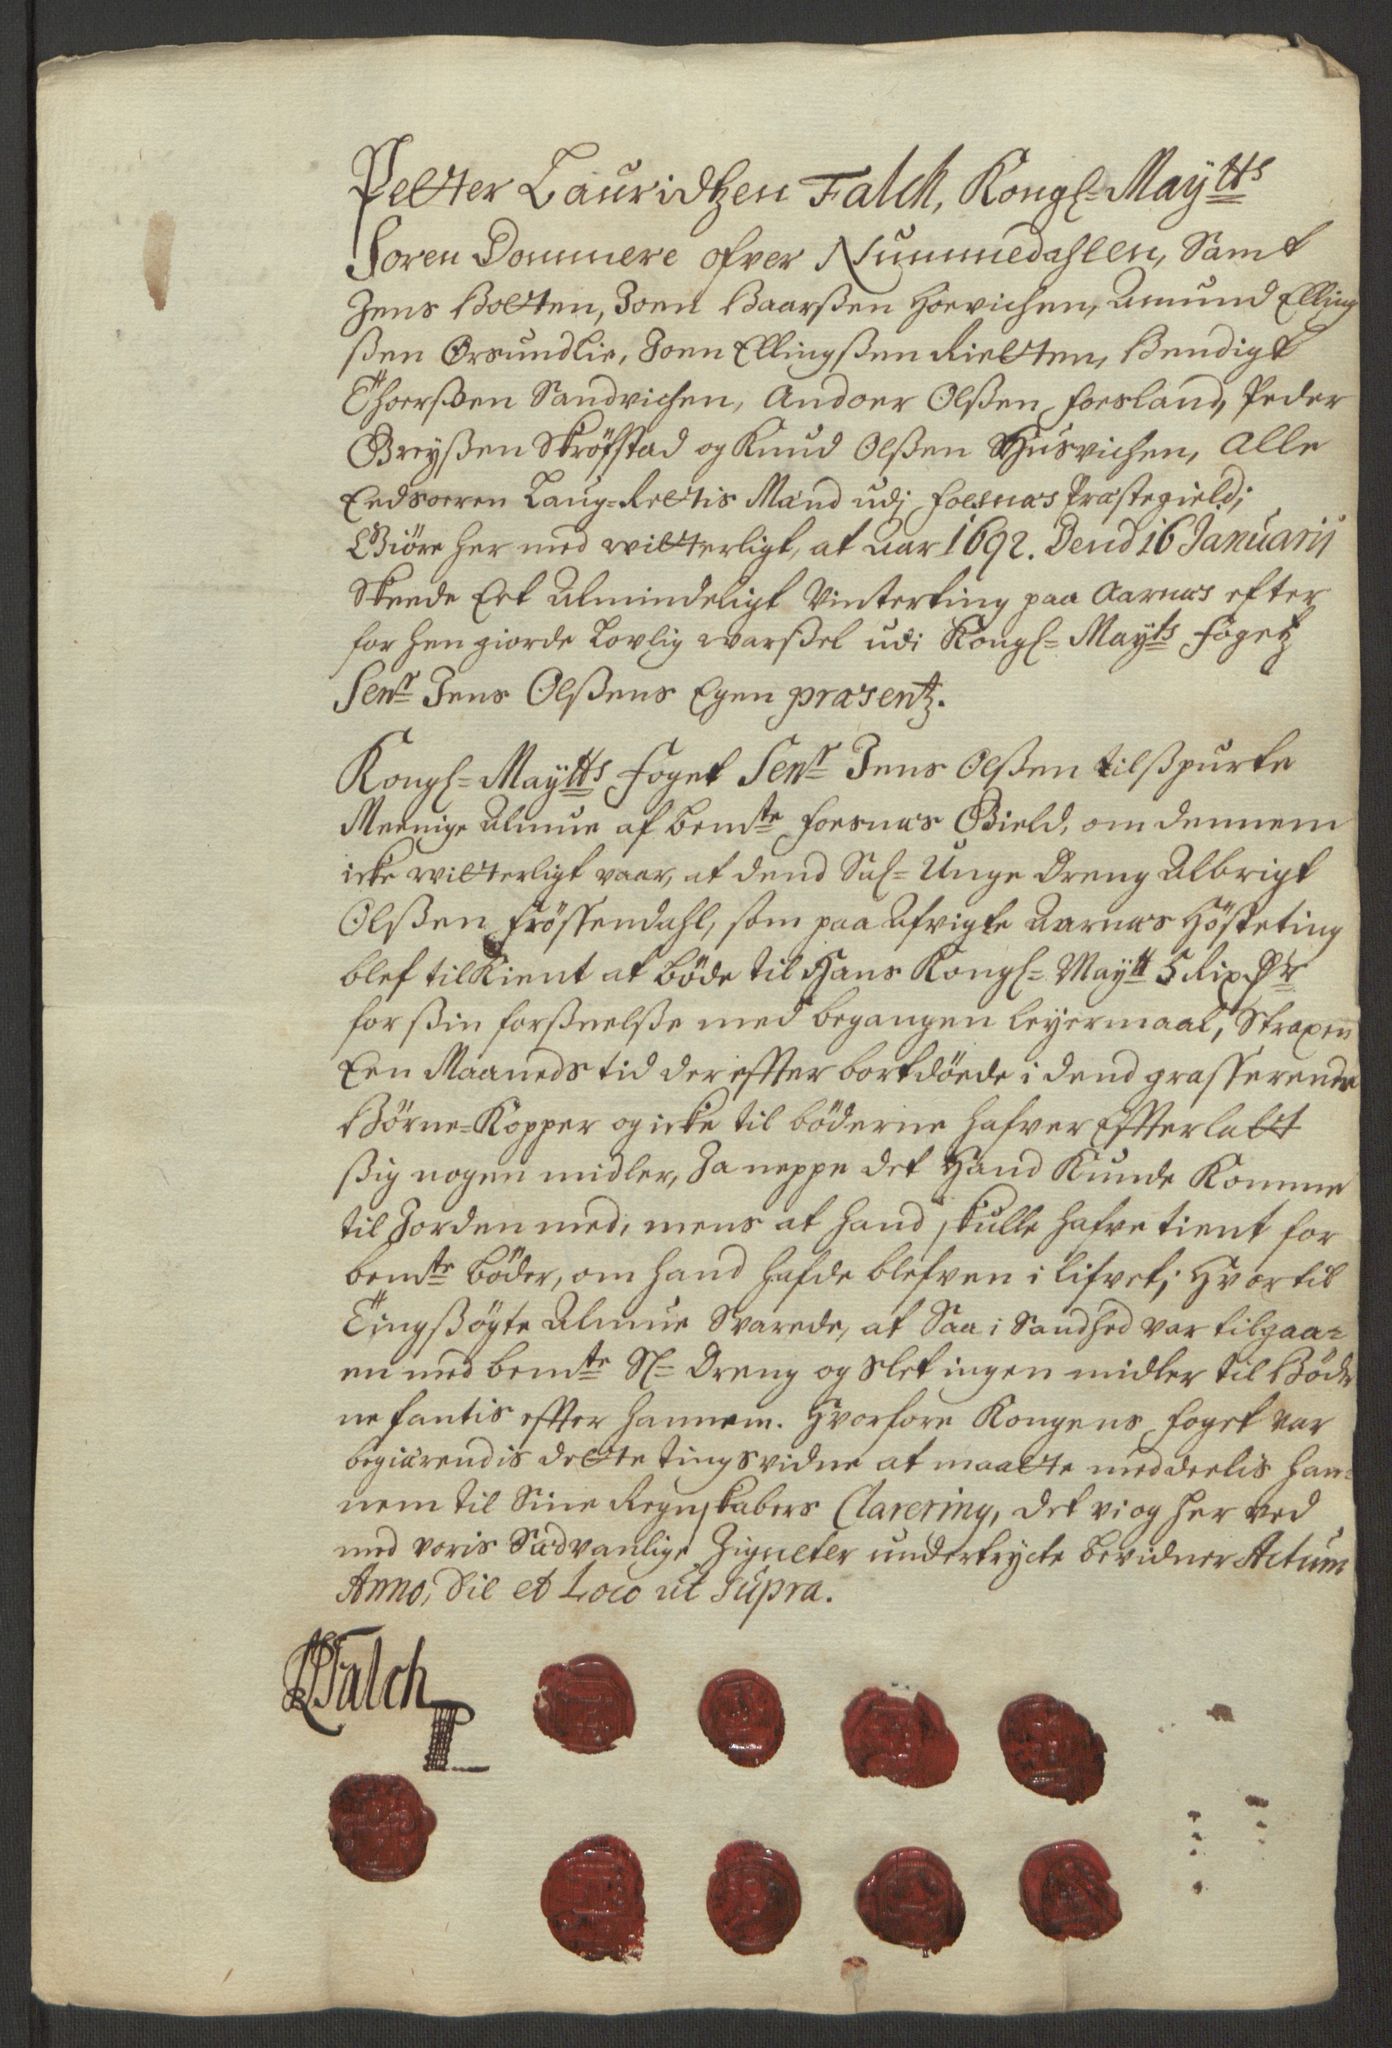 Petter Lauridtzen Falch, Kongl= Maytts
Soren Dommere ofver Nummedahlen, Samt
Jens Botten, Joen Baarßen Hoevichen, Amund Elling
ßen Orsundlie, Joen Ellingßen Rietten, Bendigt
Thoerßøen Sandvichen, Andoer Olßen Foesland, Peder
Greyßen Skröfstad og Knud Olßen Husvichen, Alle
Eedsoeren Laug=Rettis Mænd udj Foesnæs Præstegield;
Giöre her med witterligt, at aar 1692. Dend 16 Januarij
Skeede Eet Almindeligt Vinterting paa Aarnæs efter
for hen giorde Lovlig warßel udi Kongl= Mayts Fogetz
Senr Jens Olßens Egen præsentz.
Kongl= Maytts Foget Senr Jens Olßen tilßpurte
Meenige Almue af bemte Foesnæs Gield, om dennem
icke witterligt vaar, at dend Sal= Unge Dreng Albrigt
Olßen Frössendahl, som paa Afvigte Aarnæs Hösteting
blef tilkient at böde til Hans Kongl= Maytt 5 Rixdr
for ßin forßeelße med begangen leyermaal, Strax en
Een Maaneds tid der effter bortdöede i dend grasserende
Börne=Kopper og icke til böderne hafver Effterlatt
ßig nogen midler, Ja neppe det Hand Kunde Komme
til Jorden med, mens at hand skulle hafve tient for
bemte böder, om hand hafde blefven i lifvet; Hvortil
Tingßögte Almue Svarede, at Saa i Sandhed var tilgaa=
en med bemte Sl= Dreng og Slet ingen midler til Böder
ne fantis effter hannem. Hvorfore Kongens Foget var
begiærendis dette tingsvidne at maatte meddeelis han=
nem til Sine Regnskabers Clarering, det vi og her ved
med voris Sædvanlige Zigneter undertrycte bevidner Actum
Anno, Die et Loco ut supra.
PLFalch